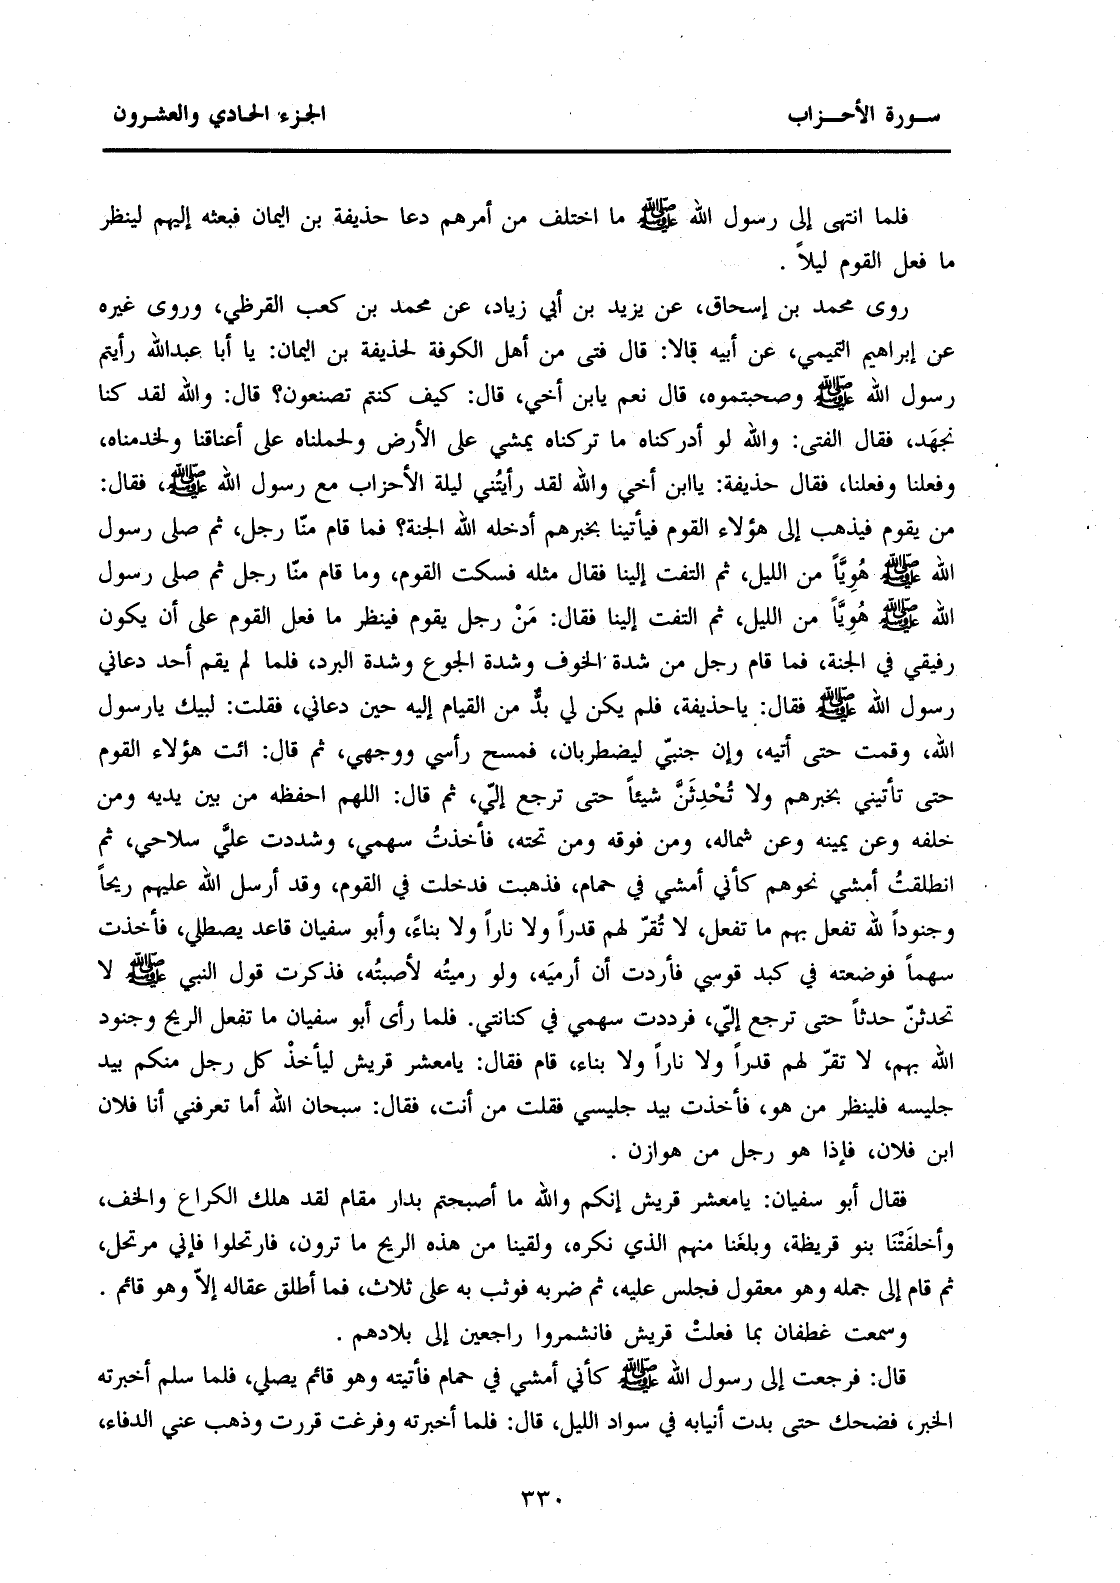 سـورة الأحـــزاب
الجزء الحادي والعشرون
فلما انتهى إلى رسول الله ﷺ ما اختلف من أمرهم دعا حذيفة بن اليمان فبعثه إليهم لينظر
ما فعل القوم ليلاً .
روى محمد بن إسحاق، عن يزيد بن أبي زياد، عن محمد بن كعب القرظي، وروى غيره
عن إبراهيم التميمي، عن أبيه قالا: قال فتى من أهل الكوفة لحذيفة بن اليمان: يا أبا عبدالله رأيتم
رسول الله ﷺ وصحبتموه، قال نعم يابن أخي، قال: كيف كنتم تصنعون؟ قال: والله لقد كنا
نجهَد، فقال الفتى: والله لو أدركناه ما تركناه يمشي على الأرض ولحملناه على أعناقنا ولخدمناه،
وفعلنا وفعلنا، فقال حذيفة: ياابن أخي والله لقد رأيتُني ليلة الأحزاب مع رسول الله ﷺ، فقال:
من يقوم فيذهب إلى هؤلاء القوم فيأتينا بخبرهم أدخله الله الجنة؟ فما قام منّا رجل، ثم صلى رسول
الله ﷺ هُوِيَّاً من الليل، ثم التفت إلينا فقال مثله فسكت القوم، وما قام منّا رجل ثم صلى رسول
الله ﷺ هُوِيَّاً من الليل، ثم التفت إلينا فقال: مَنْ رجل يقوم فينظر ما فعل القوم على أن يكون
رفيقي في الجنة، فما قام رجل من شدة الخوف وشدة الجوع وشدة البرد، فلما لم يقم أحد دعاني
رسول الله ﷺ فقال: ياحذيفة، فلم يكن لي بدٌّ من القيام إليه حين دعاني، فقلت: لبيك يارسول
الله، وقمت حتى أتيه، وإن جنبيّ ليضطربان، فمسح رأسي ووجهي، ثم قال: ائت هؤلاء القوم
حتى تأتيني بخبرهم ولا تُحْدِثَنَّ شيئاً حتى ترجع إليّ، ثم قال: اللهم احفظه من بين يديه ومن
خلفه وعن يمينه وعن شماله، ومن فوقه ومن تحته، فأخذتُ سهمي، وشددت عليَّ سلاحي، ثم
انطلقتُ أمشي نحوهم كأني أمشي في حمام، فذهبت فدخلت في القوم، وقد أرسل الله عليهم ريحاً
وجنوداً لله تفعل بهم ما تفعل، لا تُقرّ لهم قدراً ولا ناراً ولا بناءً، وأبو سفيان قاعد يصطلي، فأخذت
سهماً فوضعته في كبد قوسي فأردت أن أرميَه، ولو رميتُه لأصبتُه، فذكرت قول النبي ﷺ لا
تحدثنّ حدثاً حتى ترجع إليّ، فرددت سهمي في كنانتي. فلما رأى أبو سفيان ما تفعل الريح وجنود
الله بهم، لا تقرّ لهم قدراً ولا ناراً ولا بناء، قام فقال: يامعشر قريش ليأخذْ كل رجل منكم بيد
جليسه فلينظر من هو، فأخذت بيد جليسي فقلت من أنت، فقال: سبحان الله أما تعرفني أنا فلان
ابن فلان، فإذا هو رجل من هوازن .
فقال أبو سفيان: يامعشر قريش إنكم والله ما أصبحتم بدار مقام لقد هلك الكراع والخف،
وأخلفَتْنَا بنو قريظة، وبلغَنا منهم الذي نكره، ولقينا من هذه الريح ما ترون، فارتحلوا فإني مرتحل،
ثم قام إلى جمله وهو معقول فجلس عليه، ثم ضربه فوثب به على ثلاث، فما أطلق عقاله إلاّ وهو قائم .
وسمعت غطفان بما فعلتْ قريش فانشمروا راجعين إلى بلادهم .
قال: فرجعت إلى رسول الله ﷺ كأني أمشي في حمام فأتيته وهو قائم يصلي، فلما سلم أخبرته
الخبر، فضحك حتى بدت أنيابه في سواد الليل، قال: فلما أخبرته وفرغت قررت وذهب عني الدفاء،
٣٣٠